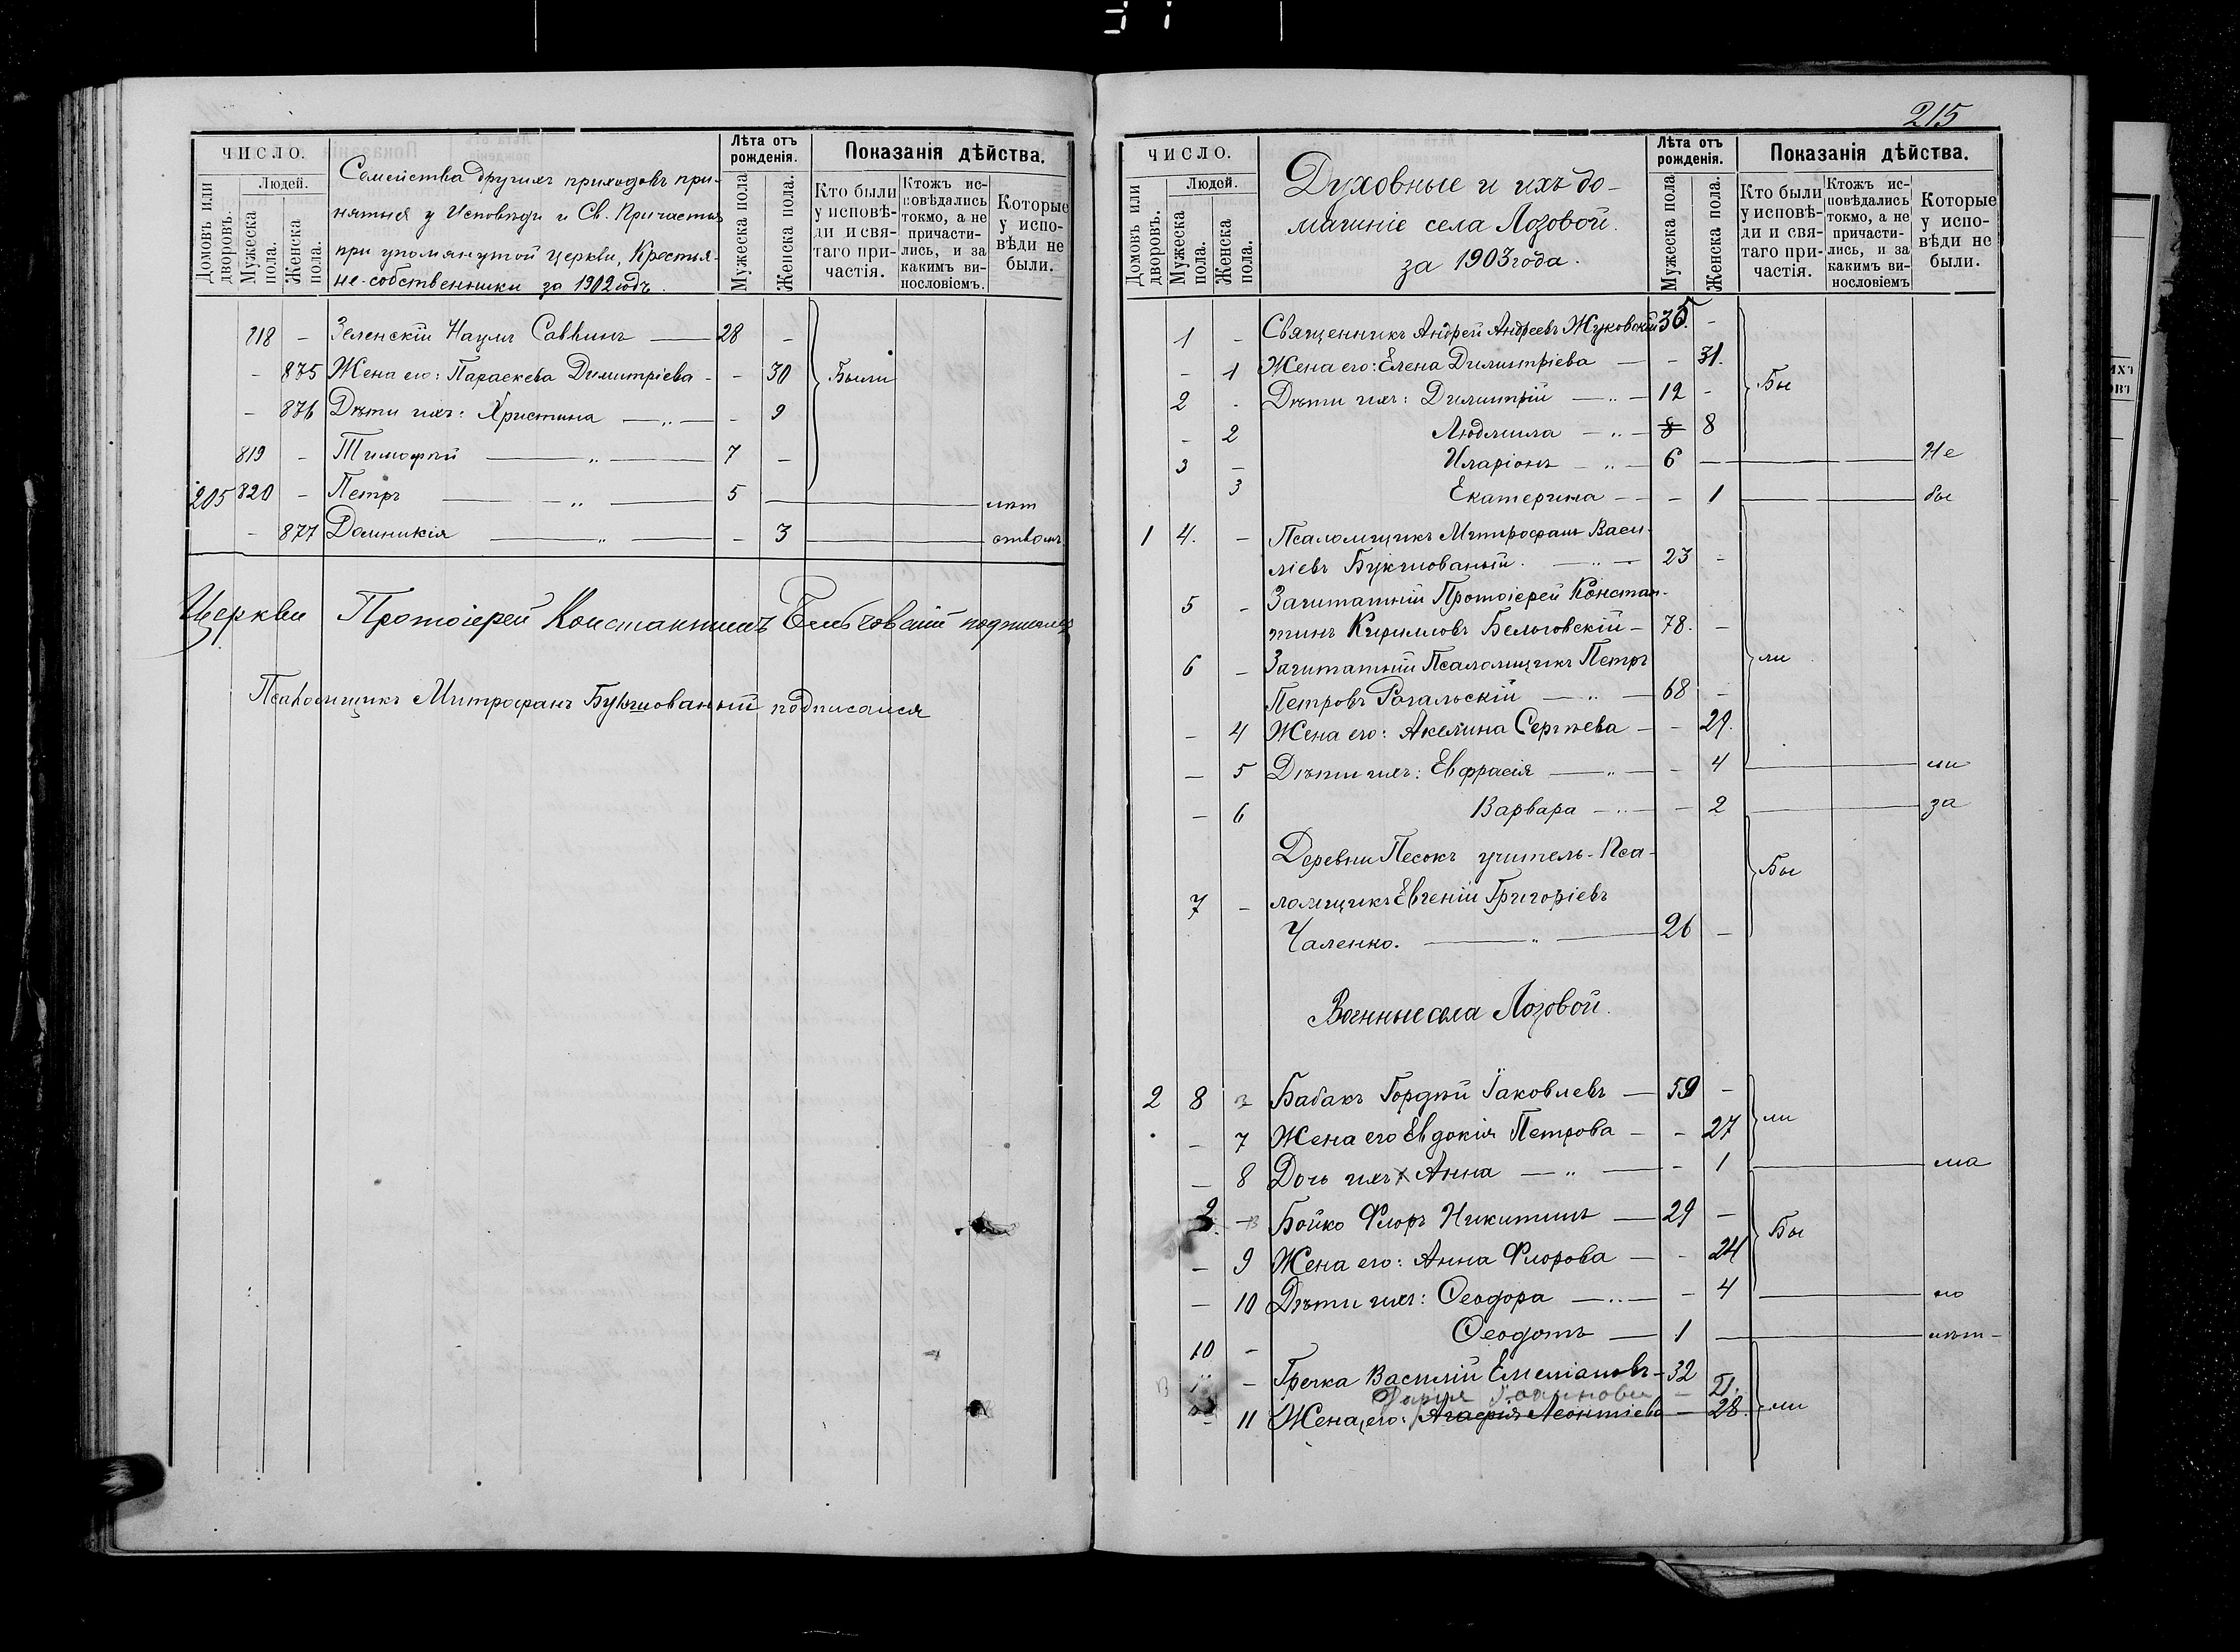 ЧИСЛО.
Домовъ или дворовъ.
Людей.
Мужеска пола.
Женска пола.
Семейства другихъ приходовъ при-
нятыя у Исповѣди и Св. Причастія
при упомянутой церкви, Крестья-
не-собственники за 1902 годъ.
Лѣта отъ рожденія.
Мужеска пола
Женска пола.
Показанія дѣйства.
Кто были у исповѣ-ди и свя-таго при-частія.
Ктожъ ис-повѣдались токмо, а не причасти-лись, и за какимъ ви-нословіемъ.
Которые у испо-вѣди не были.
818 – Зеленскій Наумъ Саввинъ — 28 –
– 875 Жена его: Параскева Димитріева – – 30 Были
– 876 Дѣти ихъ: Христина — „ — – 9
819 – Тимофѣй — „ — 7 –
205 820 – Петръ — „ — 5 — лѣт
– 877 Домникія — „ — – 3 — ствомъ
Церкви Протоіерей Константинъ Бельговскій подписался
Псаломщикъ Митрофанъ Букшованый подписался
215
ЧИСЛО.
Домовъ или дворовъ.
Людей.
Мужеска пола.
Женска пола.
Духовные и ихъ до-
машніе села Лозовой.
за 1903 года.
Лѣта отъ рожденія.
Мужеска пола
Женска пола.
Показанія дѣйства.
Кто были у исповѣ-ди и свя-таго при-частія.
Ктожъ ис-повѣдались токмо, а не причасти-лись, и за какимъ ви-нословіемъ
Которые у испо-вѣди не были.
1 – Священникъ Андрей Андреевъ Жуковскій 35. –
– 1 Жена его: Елена Димитріева — – 31.
2 – Дѣти ихъ: Димитрій — „ — 12 – Бы
– 2 Людмила — „ — 8 8
3 – Иларіонъ — „ — 6 — Не
3 Екатерина — – 1 — бы
1 4. – Псаломщикъ Митрофанъ Васи-
ліевъ Букшованый. — „ — 23 –
5 – Заштатный Протоіерей Констан-
тинъ Кирилловъ Бельговскій – 78. –
6 – Заштатный Псаломщикъ Петръ ли
Петровъ Рогальскій — „ — 68 –
– 4 Жена его: Акелина Сергѣева – – 29.
– 5 Дѣти ихъ: Евфрасія — „ — – 4 — ли
– 6 Варвара — „ — – 2 — за
Деревни Песокъ учитель-Пса- Бы
7 – ломщикъ Евгеній Григоріевъ
Чаленко. — „ — 26 –
Военные села Лозовой.
2 8 Бабакъ Гордѣй Іаковлевъ — 59 –
– 7 Жена его Евдокія Петрова – – 27 ли
– 8 Дочь ихъ Анна — „ — – 1 — ма
Бойко Флоръ Никитинъ — 29 –
– 9 Жена его: Анна Флорова — – 24 Бы
– 10 Дѣти ихъ: Ѳеодора — „ — – 4 — ло
10 – Ѳеодотъ — 1 — лѣт-
– Гречка Василій Емеліановъ – 32
Дарія Іоаннова – 21.
– 11 Жена его: Агафія Леонтіева – 28. ли